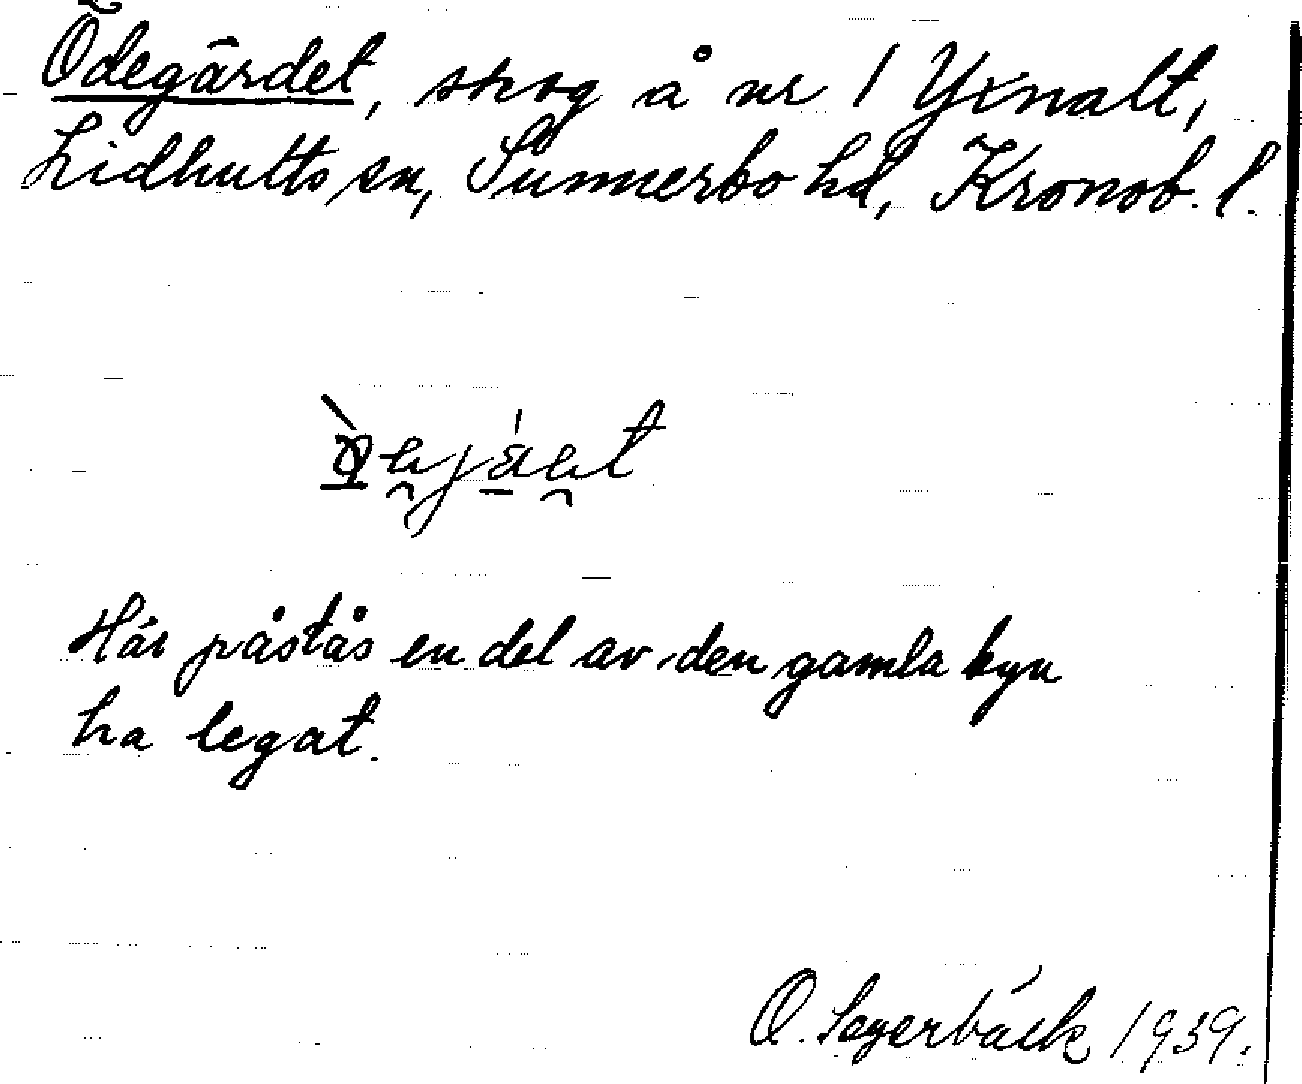 Ödegärdet, skog å nr 1 Yxnalt,
Lidhults sn, Sunnerbo hd, Kronob. l.
Här påstås en del av den gamla byn
ha legat.
O. Segerbäck 1939.